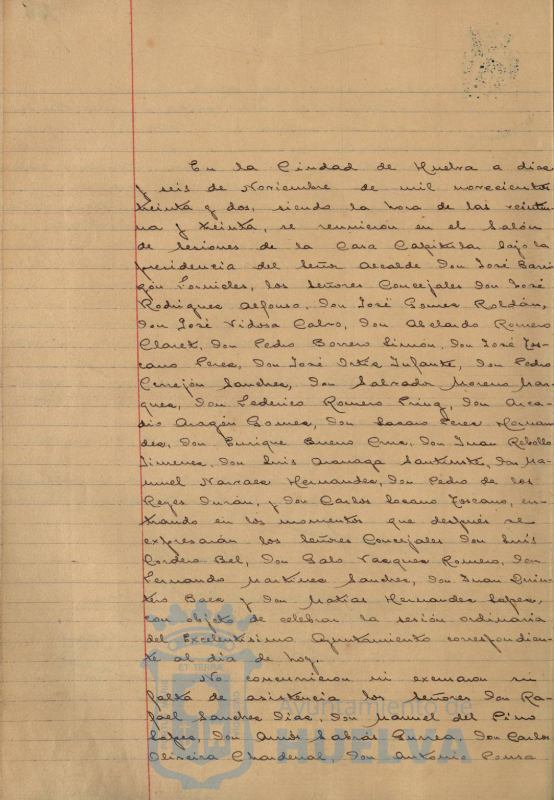 En la Ciudad de Huelva a diez
y seis de Noviembre de mil novecientos
treinta y dos, siendo la hora de las veintiu-
na y treinta, se reunieron en el Salón
de sesiones de la Casa Capitular bajo la
presidencia del Señor Alcalde Don José Barri-
gón Fornieles, los Señores Concejales Don José
Rodriguez Alfonso, Don José Gomez Roldán,
Don José Vidosa Calvo, Don Abelardo Romero
Claret, Don Pedro Borrero Limón, Don José Tos-
cano Perez, Don José Ortiz Infante, Don Pedro
Cerrejón Sanchez, Don Salvador Moreno Mar-
quez, Don Federico Romero Don Arca-
dio Aragón Gomez, Don Perez Hernan-
dez, Don Enrique Bueno Cruz, Don Juan Rebollo
Jimenez, Don Luis Don Ma-
nuel Narvaez Hernandez, Don Pedro de los
Reyes Durán, y Don Carlos Lozano Toscano, en-
trando en los momentos que después se
expresarán los Señores Concejales Don Luis
Cordero Bel, Don Galo Vazquez Romero, Don
Fernando Martinez Sanchez, Don Juan Quin-
tero Baez y Don Matías Hernandez Lopez,
con objeto de celebrar la sesión ordinaria
del Excelentísimo Ayuntamiento correspondien-
te al día de hoy.
No concurrieron ni excusaron su
falta de asistencia los Señores Don Ra-
fael Sanchez Diaz, Don Manuel del Pino
Lopez, Don Amós Sabrás Gurrea, Don Carlos
Oliveira Chardenal, Don Antonio Pousa
ET TERRA
Ayuntamiento de
HUELVA